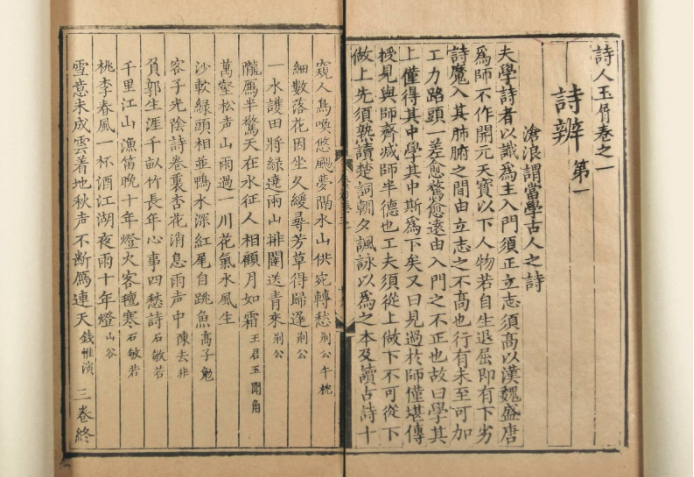 詩人玉屑卷之一
詩辨第一
滄浪謂當學古人之詩
夫學詩者以識爲主入門須正立志須高以漢魏盛唐
爲師不作開元天寶以下人物若自生退屈即有下劣
詩魔入其肺腑之間由立志之不高也行有未至可加
工力路頭一差愈騖愈遠由入門之不正也故曰學其
上僅得其中學其中斯爲下矣又曰見過於師僅堪傳
授見與師齊減師半德也工夫須從上做下不可從下
做上先須熟讀楚詞朝夕諷詠以爲之本及讀古詩十
窺人鳥喚悠颺夢隔水山供宛轉愁 荆公午枕
細數落花因坐久緩尋芳草得歸遲 荆公
一水護田將緑遶兩山排闥送青來 荆公
隴鴈半驚天在水征人相顧月如霜 王君玉聞角
萬壑松声山雨過一川花氣水風生
沙軟緑頭相並鴨水深紅尾自跳魚 高子勉
客子光陰詩卷裏杏花消息雨声中 陳去非
負郭生涯千畝竹長年心事四愁詩 石敏若
千里江山漁笛晚十年燈火客氈寒 石敏若
桃李春風一杯酒江湖夜雨十年燈 山谷
雪意未成雲着地秋声不断鴈連天 錢惟演 三卷終